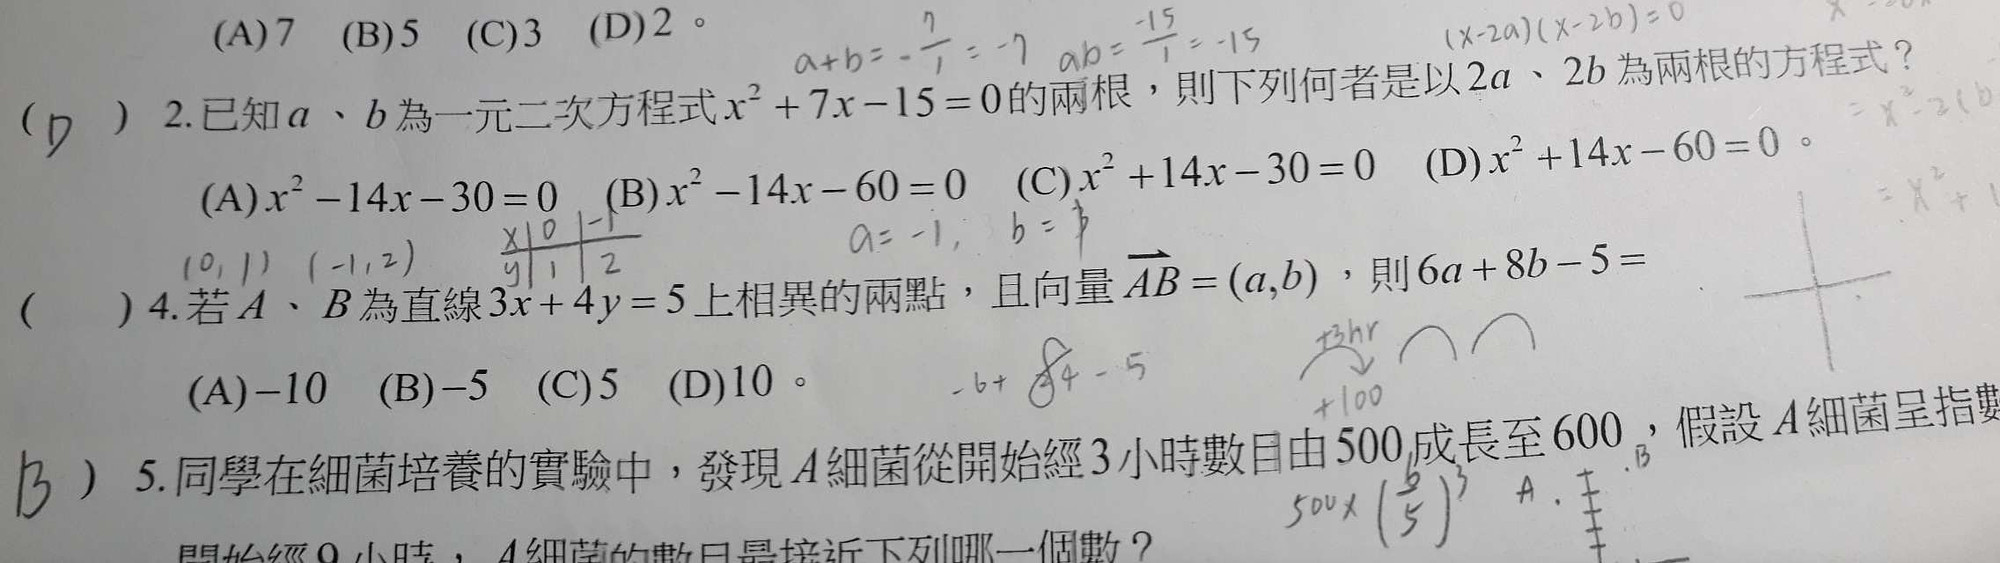 (A) 7 (B) 5 (C) 3 (D) 2 。
a+b = -7/1 = -7 ab = -15/1 = -15
(x-2a)(x-2b)=0
( D ) 2. 已知 a 、 b 為一元二次方程式 x² + 7x − 15 = 0 的兩根，則下列何者是以 2a 、 2b 為兩根的方程式？
= x² - 2(b
(A) x² − 14x − 30 = 0 (B) x² − 14x − 60 = 0 (C) x² + 14x − 30 = 0 (D) x² + 14x − 60 = 0 。
= x² + 1
(0,1) (-1,2)
x | 0 | -1
y | 1 | 2
a = -1, b = 1
( ) 4. 若 A 、 B 為直線 3x + 4y = 5 上相異的兩點，且向量 AB = (a,b) ，則 6a + 8b − 5 =
+3hr
(A) −10 (B) −5 (C) 5 (D) 10 。
-6+ 8 - 5
+100
B ) 5. 同學在細菌培養的實驗中，發現 A 細菌從開始經 3 小時數目由 500 成長至 600 ，假設 A 細菌呈指數
500× (6/5)³ A . . B
開始經 9 小時， A 細菌的數目最接近下列哪一個數？